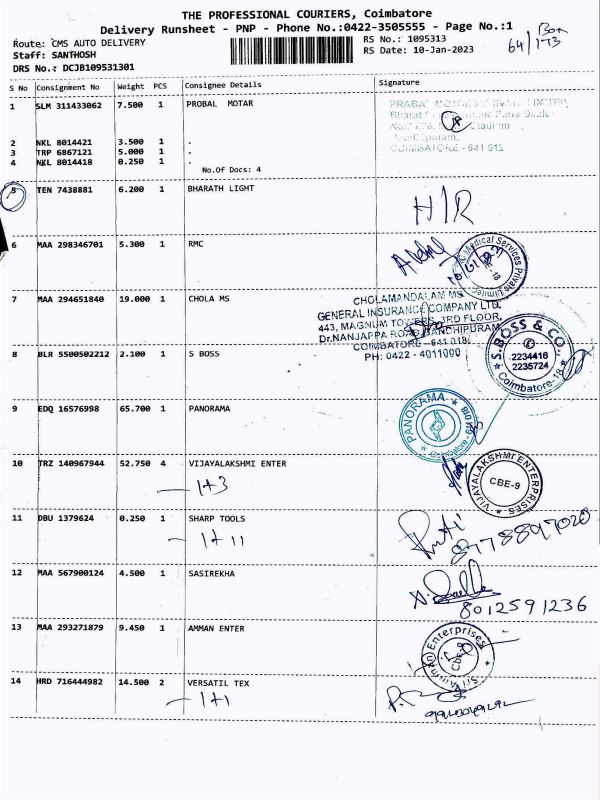 THE PROFESSIONAL COURIERS, Coimbatore
Delivery Runsheet - PNP - Phone No.:0422-3505555 - Page No.:1
Route: CMS AUTO DELIVERY
Staff: SANTHOSH
DRS No.: DCJB109531301
RS No.: 1095313
RS Date: 10-Jan-2023
64/173
S No Consignment No Weight PCS Consignee Details Signature
1 SLM 311433062 7.500 1 PROBAL MOTAR
COIMBATORE - 641 012
2 NKL 8014421 3.500 1 .
3 TRP 6867121 5.000 1 .
4 NKL 8014418 0.250 1 .
No.Of Docs: 4
5 TEN 7438881 6.200 1 BHARATH LIGHT
H/R
6 MAA 298346701 5.300 1 RMC
Medical Services Private Limited
7 MAA 294651840 19.000 1 CHOLA MS
CHOLAMANDALAM MS
GENERAL INSURANCE COMPANY LTD.
443, MAGNUM TOWERS, 3RD FLOOR,
Dr.NANJAPPA ROAD, GANDHIPURAM,
COIMBATORE - 641 018.
PH: 0422 - 4011000
8 BLR 5500502212 2.100 1 S BOSS
S.BOSS & CO.,
2234416
2235724
Coimbatore-18
9 EDQ 16576998 65.700 1 PANORAMA
PANORAMA
Coimbatore - 641018
10 TRZ 140967944 52.750 4 VIJAYALAKSHMI ENTER
1+3
VIJAYALAKSHMI ENTERPRISES
CBE-9
11 DBU 1379624 0.250 1 SHARP TOOLS
1+11
8778897020
12 MAA 567900124 4.500 1 SASIREKHA
8012591236
13 MAA 293271879 9.450 1 AMMAN ENTER
Sri Amman Enterprises
CBE-9
14 HRD 716444982 14.500 2 VERSATIL TEX
1+1